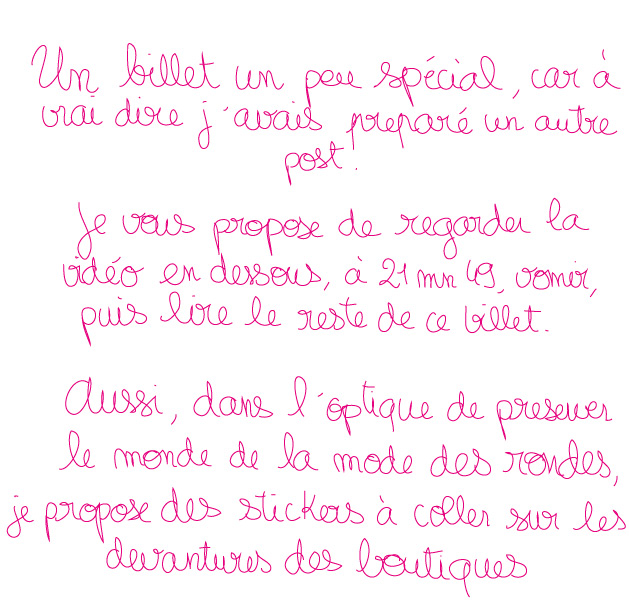 Un billet un peu spécial, car à
vrai dire j'avais preparé un autre
post.
Je vous propose de regarder la
vidéo en dessous, à 21 mn 49, vomir,
puis lire le reste de ce billet.
Aussi, dans l'optique de preserver
le monde de la mode des rondes,
je propose des stickers à coller sur les
devantures des boutiques